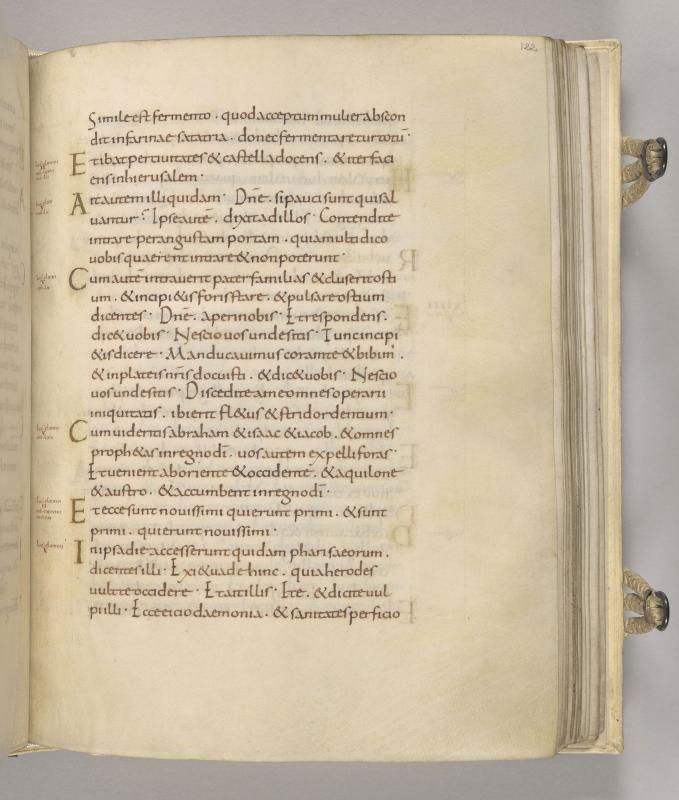 122
Simile est fermento · quod acceptum mulier abscon
dit in farinae sata tria · donec fermentaretur totū ·
Et ibat per civitates & castella docens · & iter faci
ens in hierusalem ·
Ait autem illi quidam · Dn̄e · si pauci sunt qui sal
vantur? Ipse autē · dixit ad illos · Contendite
intrare per angustam portam · quia multi dico
vobis quaerent intrare & non poterunt ·
Cum autē intraverit pater familias & cluserit osti
um · & incipi&is foris stare · & pulsare ostium
dicentes · Dn̄e · aperi nobis · Et respondens ·
dic& vobis · Nescio vos unde sitis · Tunc incipi
&is dicere · Manducavimus coram te & bibim' ·
& in plateis nr̄is docuisti · & dic& vobis · Nescio
vos unde sitis · Discedite a me omnes operarii
iniquitatis · ibi erit fl&us & stridor dentium ·
Cum videritis abraham & isaac & iacob · & omnes
proph&as in regno dī · vos autem expelli foras ·
Et venient ab oriente & occidente · & aquilone
& austro · & accumbent in regno dī ·
Et ecce sunt novissimi qui erunt primi · & sunt
primi · qui erunt novissimi ·
In ipsa die accesserunt quidam pharisaeorum ·
dicentes illi · Exi & vade hinc · quia herodes
vult te occidere · Et ait illis · Ite · & dicite vul
pi illi · Ecce eicio daemonia · & sanitates perficio